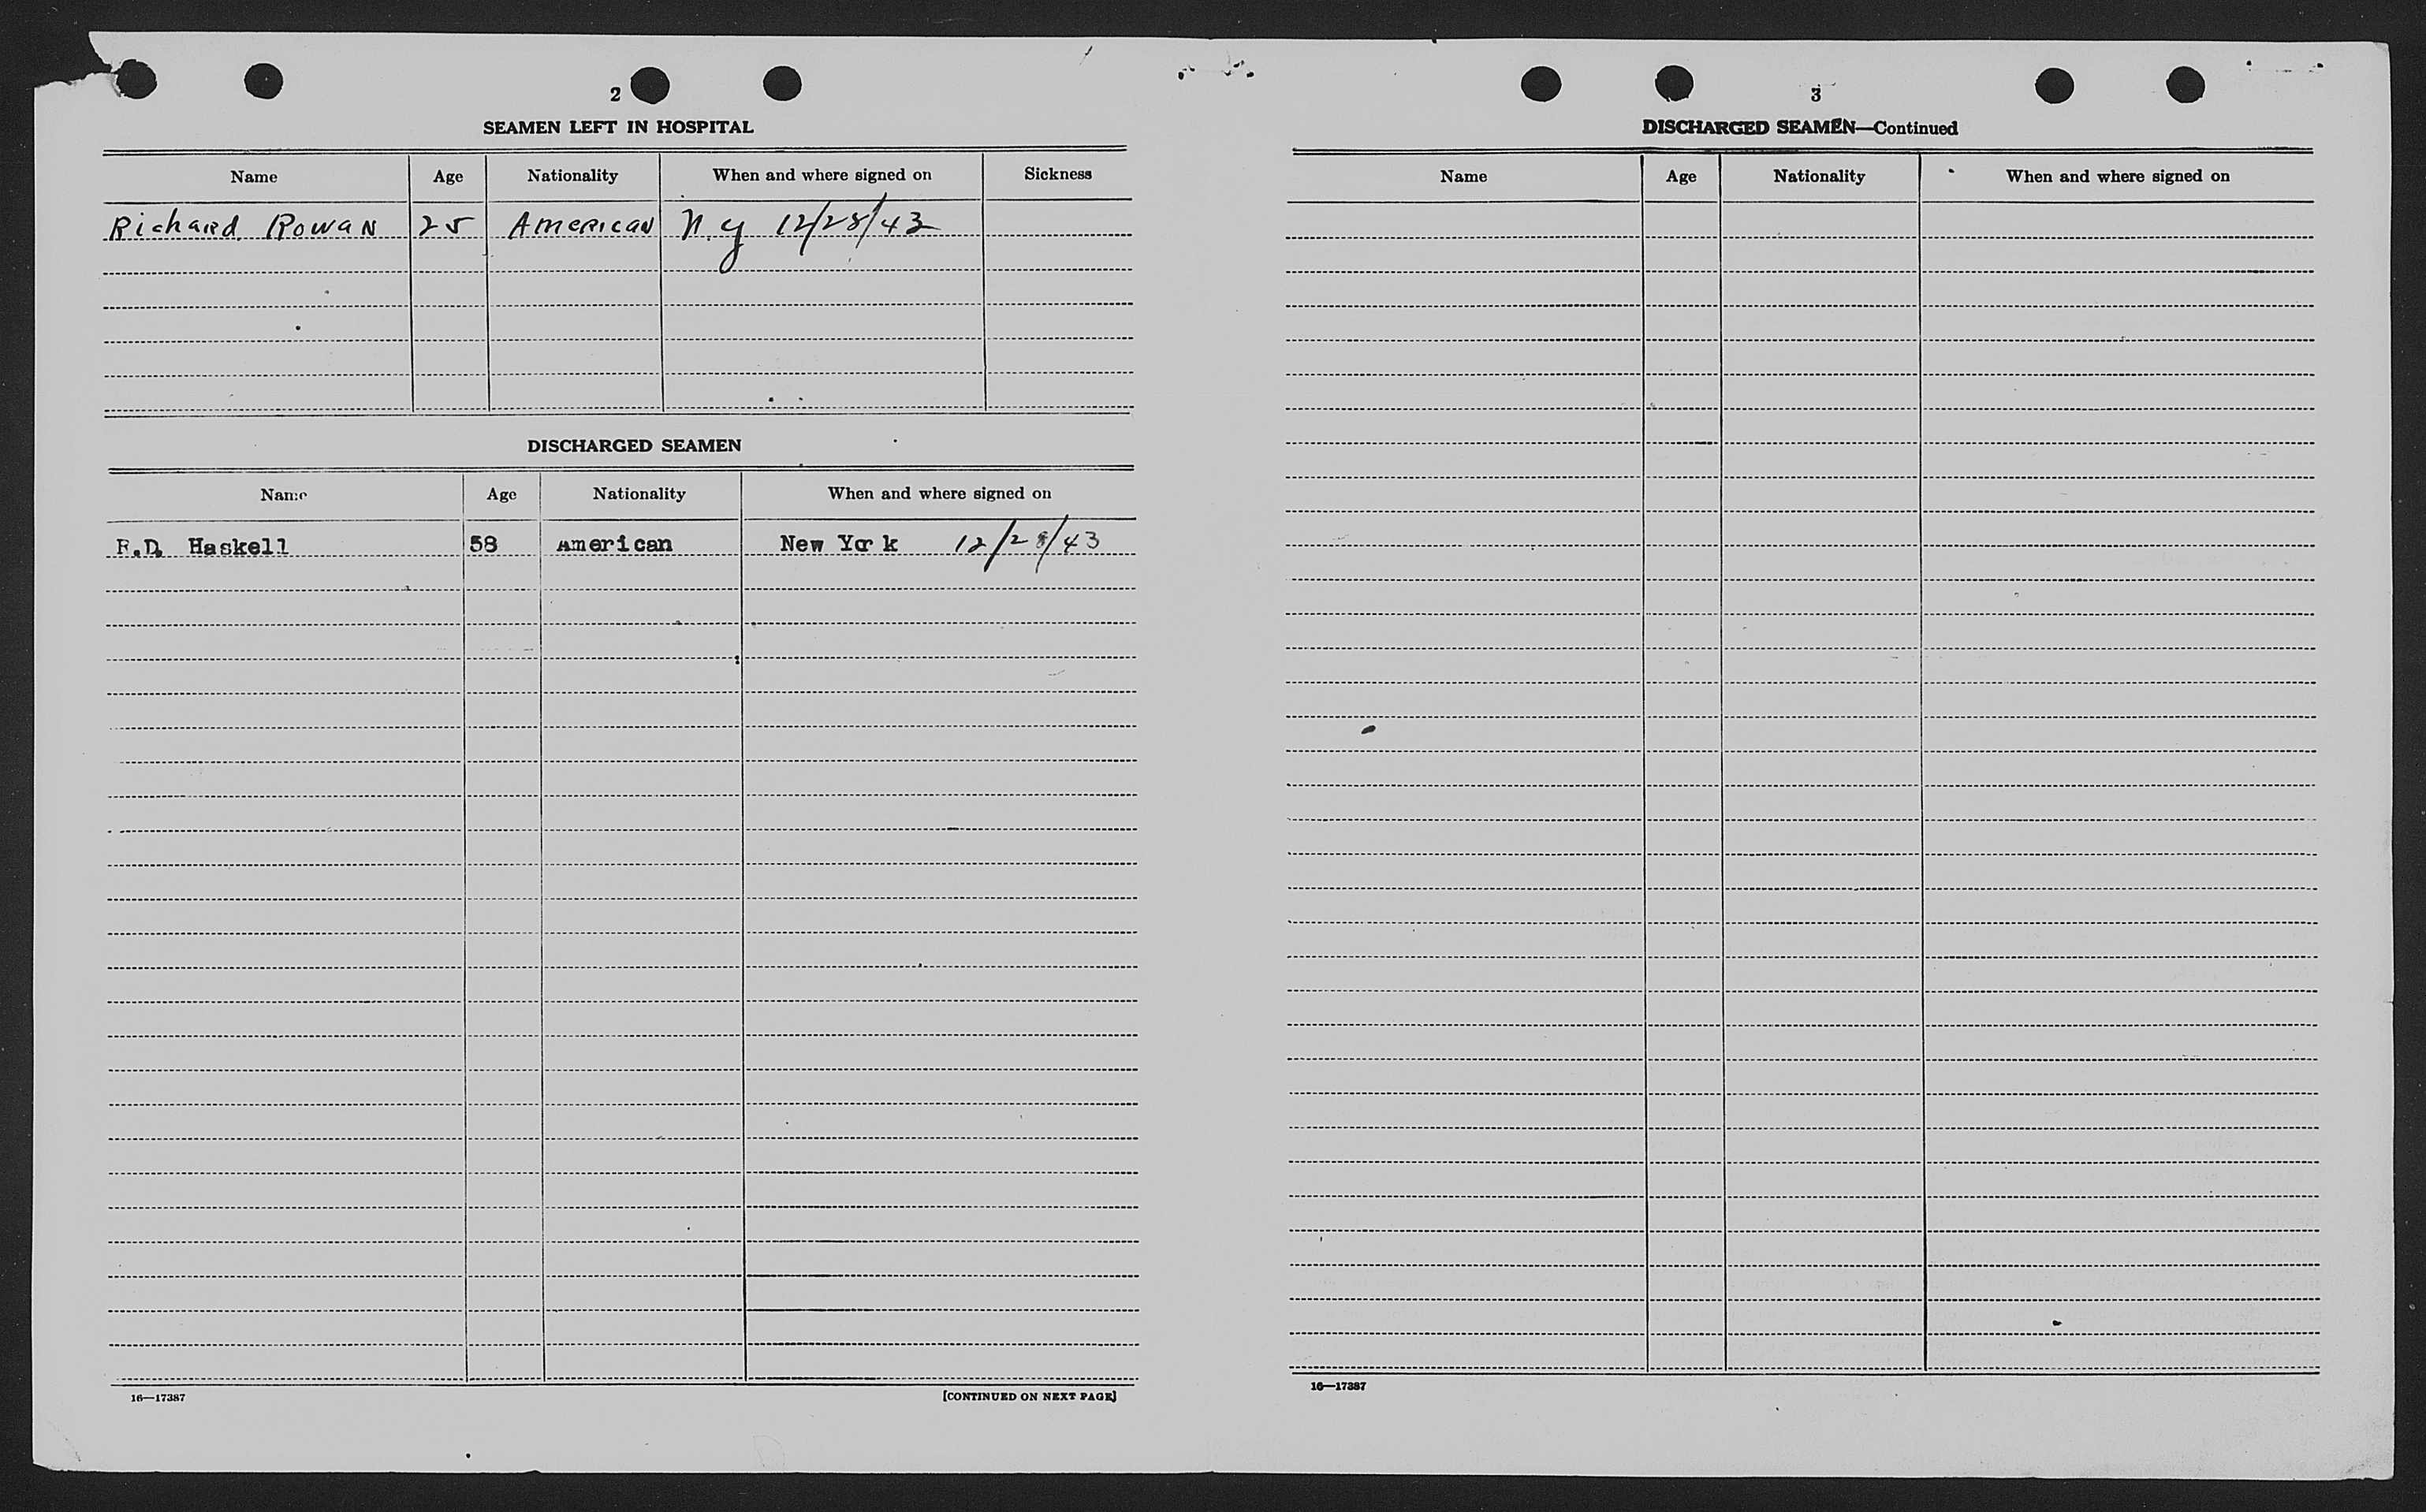 2
SEAMEN LEFT IN HOSPITAL
Name Age Nationality When and where signed on Sickness
Richard Rowan 25 American N.Y 12/28/43
DISCHARGED SEAMEN
Name Age Nationality When and where signed on
F.D. Haskell 58 American New York 12/28/43
16—17387 [CONTINUED ON NEXT PAGE]
3
DISCHARGED SEAMEN—Continued
Name Age Nationality When and where signed on
16—17387